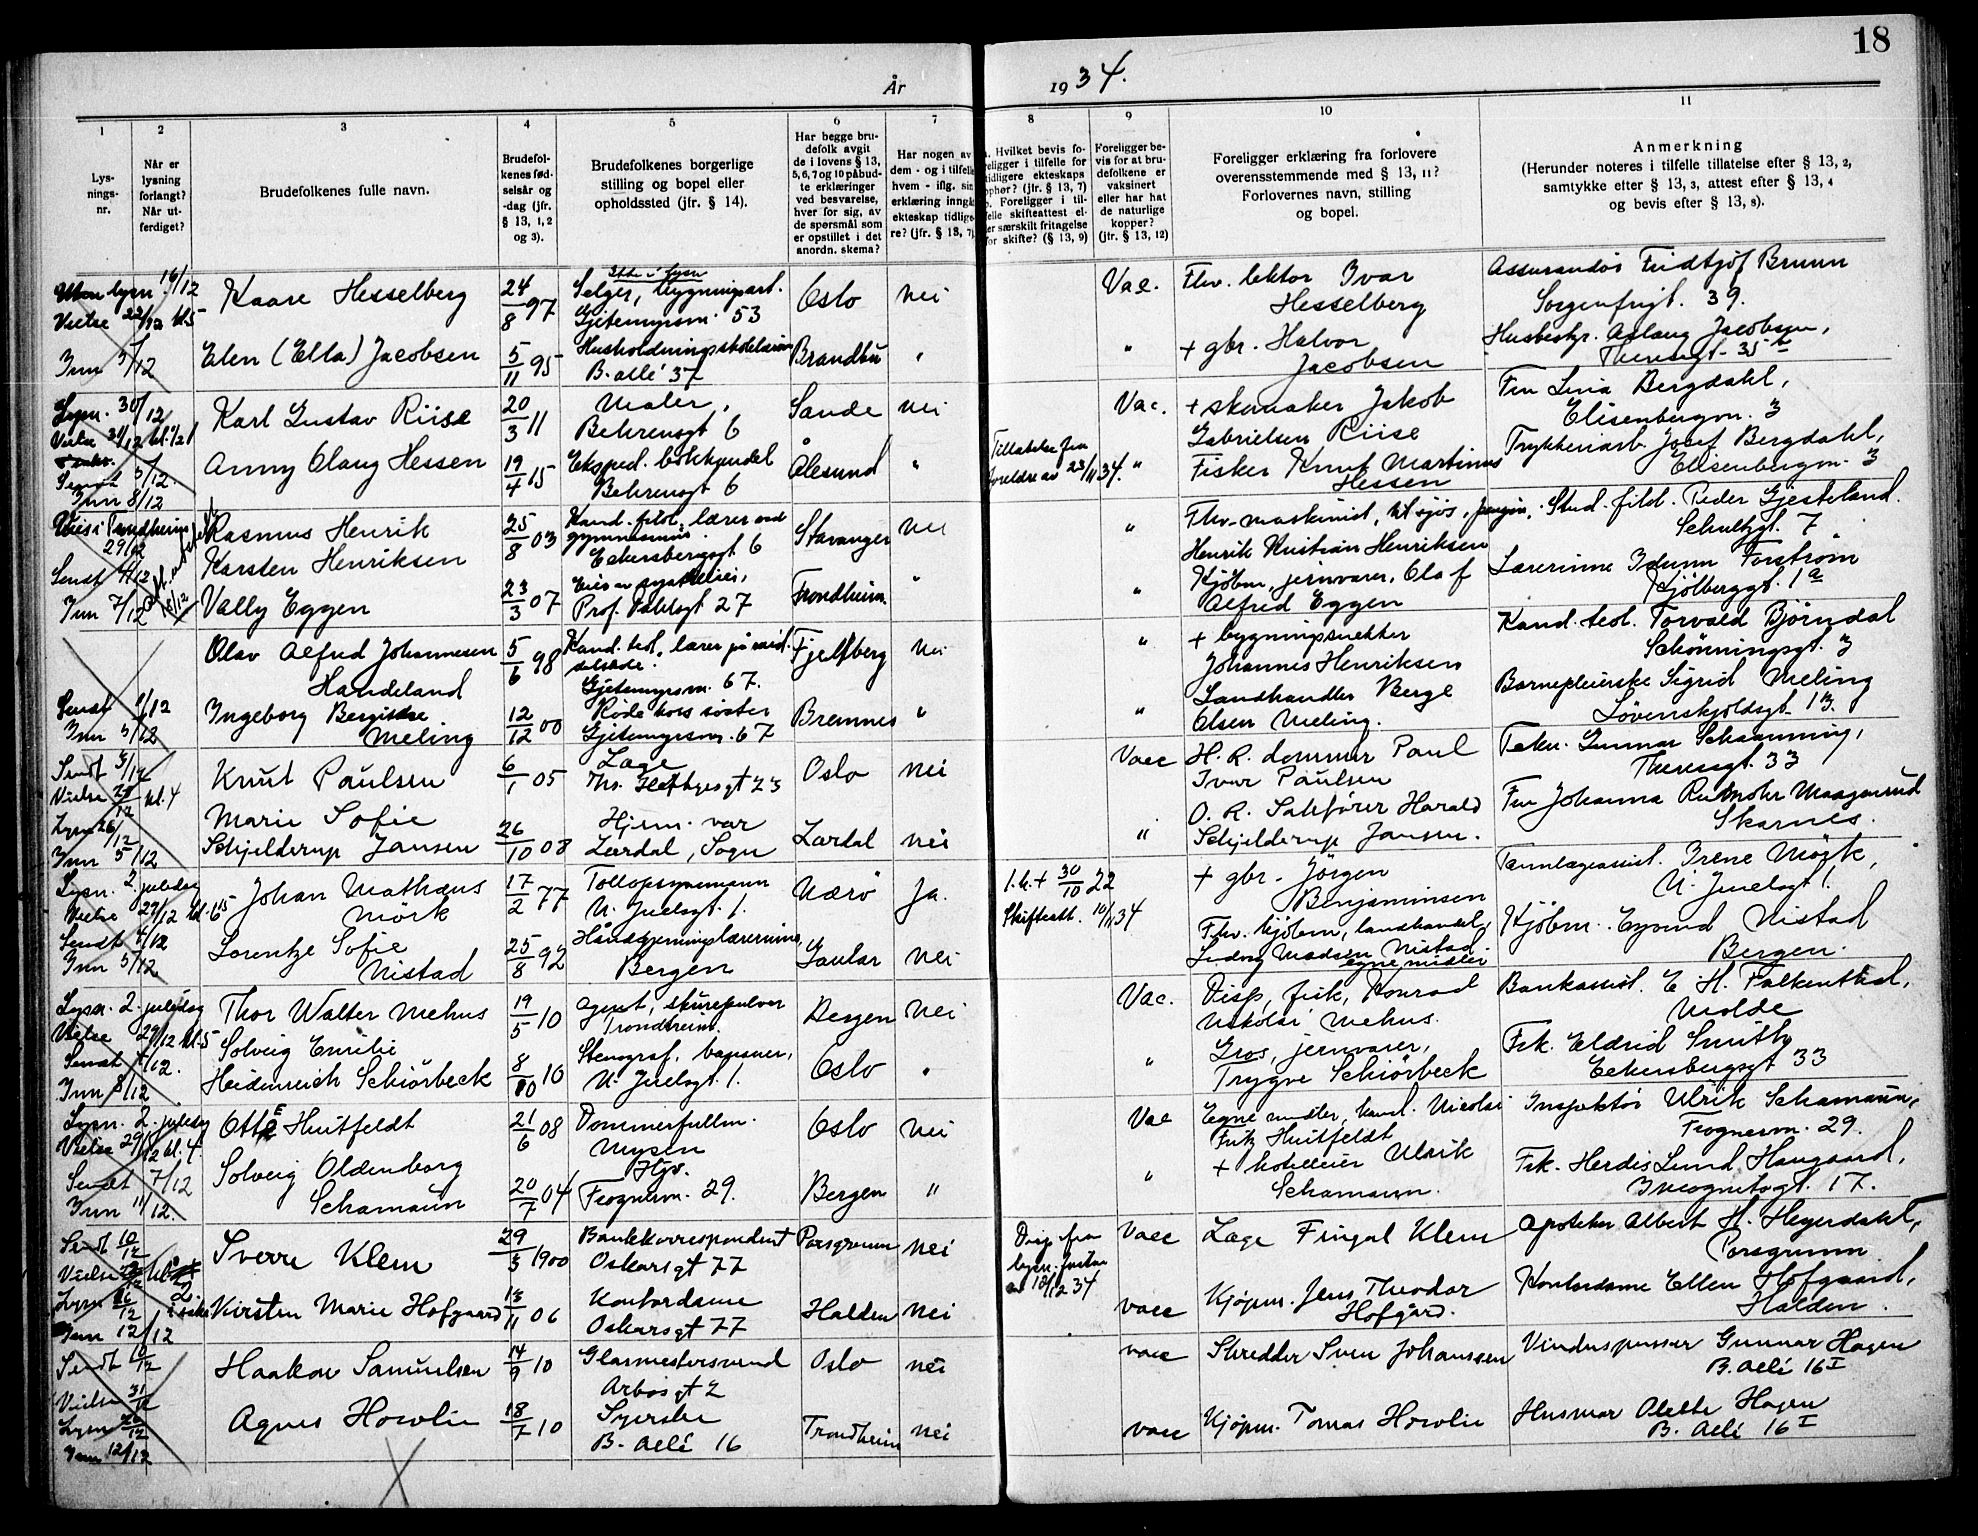 18
År 1934.
1 2 3 4 5 6 7 8 9 10 11
Lys-
nings-
nr.
Når er
lysning
forlangt?
Når ut-
ferdiget?
Brudefolkenes fulle navn.
Brudefol-
kenes fød-
selsår og
-dag (jfr.
§ 13, 1, 2
og 3).
Brudefolkenes borgerlige
stilling og bopel eller
opholdssted (jfr. § 14).
Har begge bru-
defolk avgit
de i lovens § 13,
5, 6, 7 og 10 påbud-
te erklæringer
ved besvarelse,
hver for sig, av
de spørsmål som
er opstillet i det
anordn. skema?
Har nogen av
dem - og i tilfelle
hvem - iflg. sin
erklæring inngå
ekteskap tidlige-
re? (jfr. § 13, 7)
a. Hvilket bevis fo-
religger i tilfelle for
tidligere ekteskaps
ophør? (jfr. § 13, 7)
b. Foreligger i til-
felle skifteattest el-
ler særskilt fritagelse
for skifte? (§ 13, 9)
Foreligger be-
vis for at bru-
defolkene er
vaksinert
eller har hat
de naturlige
kopper?
(jfr. § 13, 12)
Foreligger erklæring fra forlovere
overensstemmende med § 13, 11?
Forlovernes navn, stilling
og bopel.
Anmerkning
(Herunder noteres i tilfelle tillatelse efter § 13, 2,
samtykke efter § 13, 3, attest efter § 13, 4
og bevis efter § 13, 8).
Uten lysn. 16/12
Vielse 22/12 kl. 5
Inn 5/12
Kaare Hesselberg 24/8 97 Selger, bygningsart.
Gjetemyrsv. 53 Oslo Nei Vac. Fhv. lektor Ivar
Hesselberg Assurandør Fridtjof Bruun
Sorgenfrigt. 39.
Elen (Ella) Jacobsen 5/11 95 Husholdningsskolelærerinne
B. allé 37 Brandbu " " + gbr. Halvor
Jacobsen Husbestyr. Aslaug Jacobsen,
Theresgt. 35 b
Lysn. 30/12
Inn 8/12
Karl Gustav Riise 20/3 11 Maler,
Behrensgt 6 Sande Nei Vac. + skomaker Jakob
Gabrielsen Riise Fru Lina Bergdahl,
Elisenbergvn. 3
Anny Olaug Hessen 19/4 15 Eksped. bokhandel
Behrensgt 6 Ålesund " Tillatelse fra
foreldre av 23/11 34. " Fisker Knut Martinus
Hessen Trykkeriarb. Josef Bergdahl,
Elisenbergvn. 3
Vies i Trondheim
29/12
Sendt 4/12
Inn 7/12
Rasmus Henrik
Karsten Henriksen 25/8 03 Kand. filol., lærer ved
gymnasium.
Eckersbergsgt 6 Stavanger Nei " Fhv. maskinist, til sjøs,
Henrik Kristian Henriksen Stud. filol. Peder Gjesteland.
Schultzgt. 7
Vally Eggen 23/3 07 Eier av systueri,
Prof. Dahlsgt 27 Trondheim " " Kjøbm., jernvarer, Olaf
Alfred Eggen Lærerinne Idunn Forstrøm
Kjølberggt. 1a
Sendt 1/12
Inn 5/12
Olav Alfred Johannesen
Handeland 5/6 98 Kand. teol., lærer på
Gjetemyrsv. 67. Fjelberg Nei " + bygningssnekker
Johannes Henriksen Kand. teol. Torvald Bjørndal
Schønningsgt. 3
Ingeborg Bergitte
Meling 12/12 00 Røde kors søster
Gjetemyrsv. 67 Bremnes " " Landhandler Berge
Olsen Meling. Barnepleierske Sigrid Meling
Løvenskjoldsgt. 13.
Sendt 5/12
Vielse 28/12 kl. 4
Lysn 26/12
Inn 5/12
Knut Paulsen 6/1 05 Læge
Ths. Heftyesgt 23 Oslo Nei Vacc H. R. dommer Paul
Ivar Paulsen Tekn. Gunnar Schaanning,
Theresgt. 33
Marie Sofie
Schjelderup Jansen 26/10 08 Hjem. vær
Lærdal, Sogn Lærdal Nei " O. R. Sakfører Harald
Schjelderup Jansen. Fru Johanna
Skarnes.
Lysn. 2. juledag
Vielse 29/12 kl. 6 15
Sendt 4/12
Inn 5/12
Johan Mathæus
Mörk 17/2 77 Tolloppsynsmann
N. Juelsgt. 1. Nærø Ja. 1. h. + 30/10 22
Skifteatt. 10/11 34 + gbr. Jörgen
Benjaminsen Tannlægeassist. Irene Mörk,
N. Juelsgt 1.
Lorentze Sofie
Nistad 25/8 92 Håndgjerningslærerinne,
Bergen Gaular Nei Fhv. kjøbm., landhandel,
Ludvig Madsen Nistad
egne midler Kjøbm. Eyvind Nistad
Bergen.
Lysn. 2. juledag
Vielse 29/12 kl. 5
Sendt 4/12.
Inn 8/12
Thor Walter Mehus 19/5 10 Agent, skurepulver
Trondheim. Bergen Nei Vac. Disp., fisk, Konrad
Nikolai Mehus. Bankassist. E. H. Falkenthal,
Molde
Solveig Emilie
Heidenreich Schiörbeck 8/10 10 Stenograf, bankner,
N. Juelsgt. 1. Oslo " " Gros., jernvarer,
Trygve Schiörbeck Frk. Eldrid Smith,
Eckersbergsgt 33
Lysn. 2. juledag
Vielse 29/12 kl. 4.
Sendt 7/12
Inn 11/12.
Otto Huitfeldt 21/6 08 Dommerfullm.
Mysen Oslo Nei Vac Egne midler, kand. Nicolai
Fritz Huitfeldt Inspektör Ulrik Schamaun,
Frognervn. 29.
Solveig Oldenborg
Schamaun 20/7 04 Hjv.
Frognervn. 29. Bergen " " + hotelleier Ulrik
Schamaun. Frk. Herdis Lund Haugaard,
Incognitogt. 17.
Sendt 10/12
Lysn 26/12
Inn 12/12
Sverre Klem 29/3 1900 Bankkorrespondent
Oskarsgt 77 Porsgrunn Nei Disp. fra
lysn. fristen
av 18/12 34 Vacc Læge Fingal Klem Apoteker Albert H. Heyerdahl,
Porsgrunn
Kirsten Marie Hofgaard 13/11 06 Kontordame
Oskarsgt 77 Halden Nei Vacc Kjøpm. Jens Theodor
Hofgård. Kontordame Ellen Hofgaard,
Halden.
Sendt 10/12
Vielse 31/12
Lysn 26/12
Inn 12/12
Haakon Samuelsen 14/9 10 Glassmestersvend
Arbosgt 2 Oslo Nei Vacc Skredder Sven Johanssen Vinduspusser Gunnar Hagen
B. Allé 16 I
Agnes Howlie 18/7 10 Syerske
B. Allé 16 Trondheim Nei Vacc Kjøpm. Tomas Howlie Husmor Alette Hagen
B. Allé 16 I